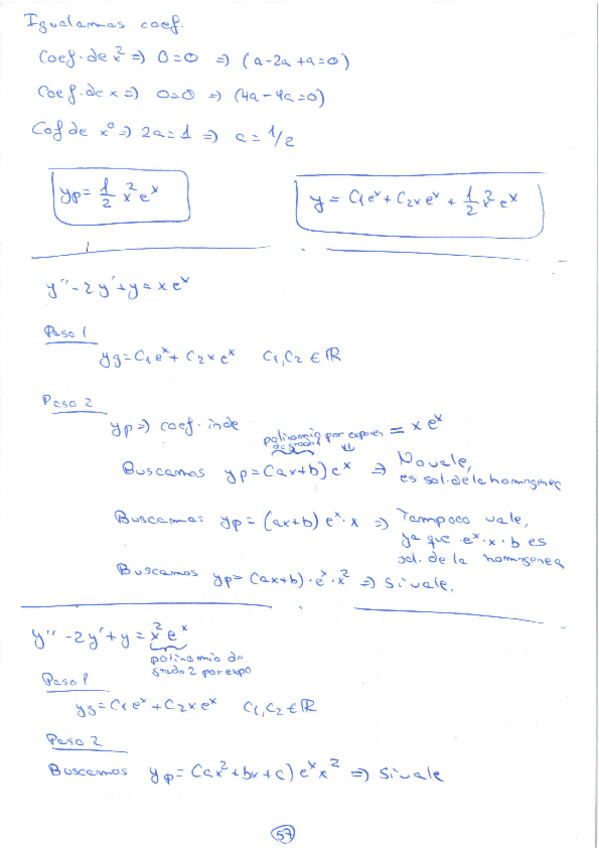 Igualamos coef.
Coef. de x² => 0=0 => (a-2a+a=0)
Coef. de x => 0=0 => (4a-4a=0)
Cof de x⁰ => 2a=1 => a=1/2
yp = 1/2 x² eˣ
y = C₁eˣ + C₂xeˣ + 1/2 x² eˣ
y''-2y'+y = xeˣ
Paso 1
yg = C₁eˣ + C₂xeˣ C₁,C₂ ∈ ℝ
Paso 2
yp => coef. inde = xeˣ
polinomio por expo
de grado 1
Buscamos yp = (ax+b)eˣ => No vale,
es sol. de la homogenea
Buscamos yp = (ax+b)eˣ·x => Tampoco vale,
ya que eˣ·x·b es
sol. de la homogenea
Buscamos yp = (ax+b)·eˣ·x² => Si vale.
y''-2y'+y = x²eˣ
polinomio de
grado 2 por expo
Paso 1
yg = C₁eˣ + C₂xeˣ C₁,C₂ ∈ ℝ
Paso 2
Buscamos yp = (ax²+bx+c)eˣx² => Si vale
57